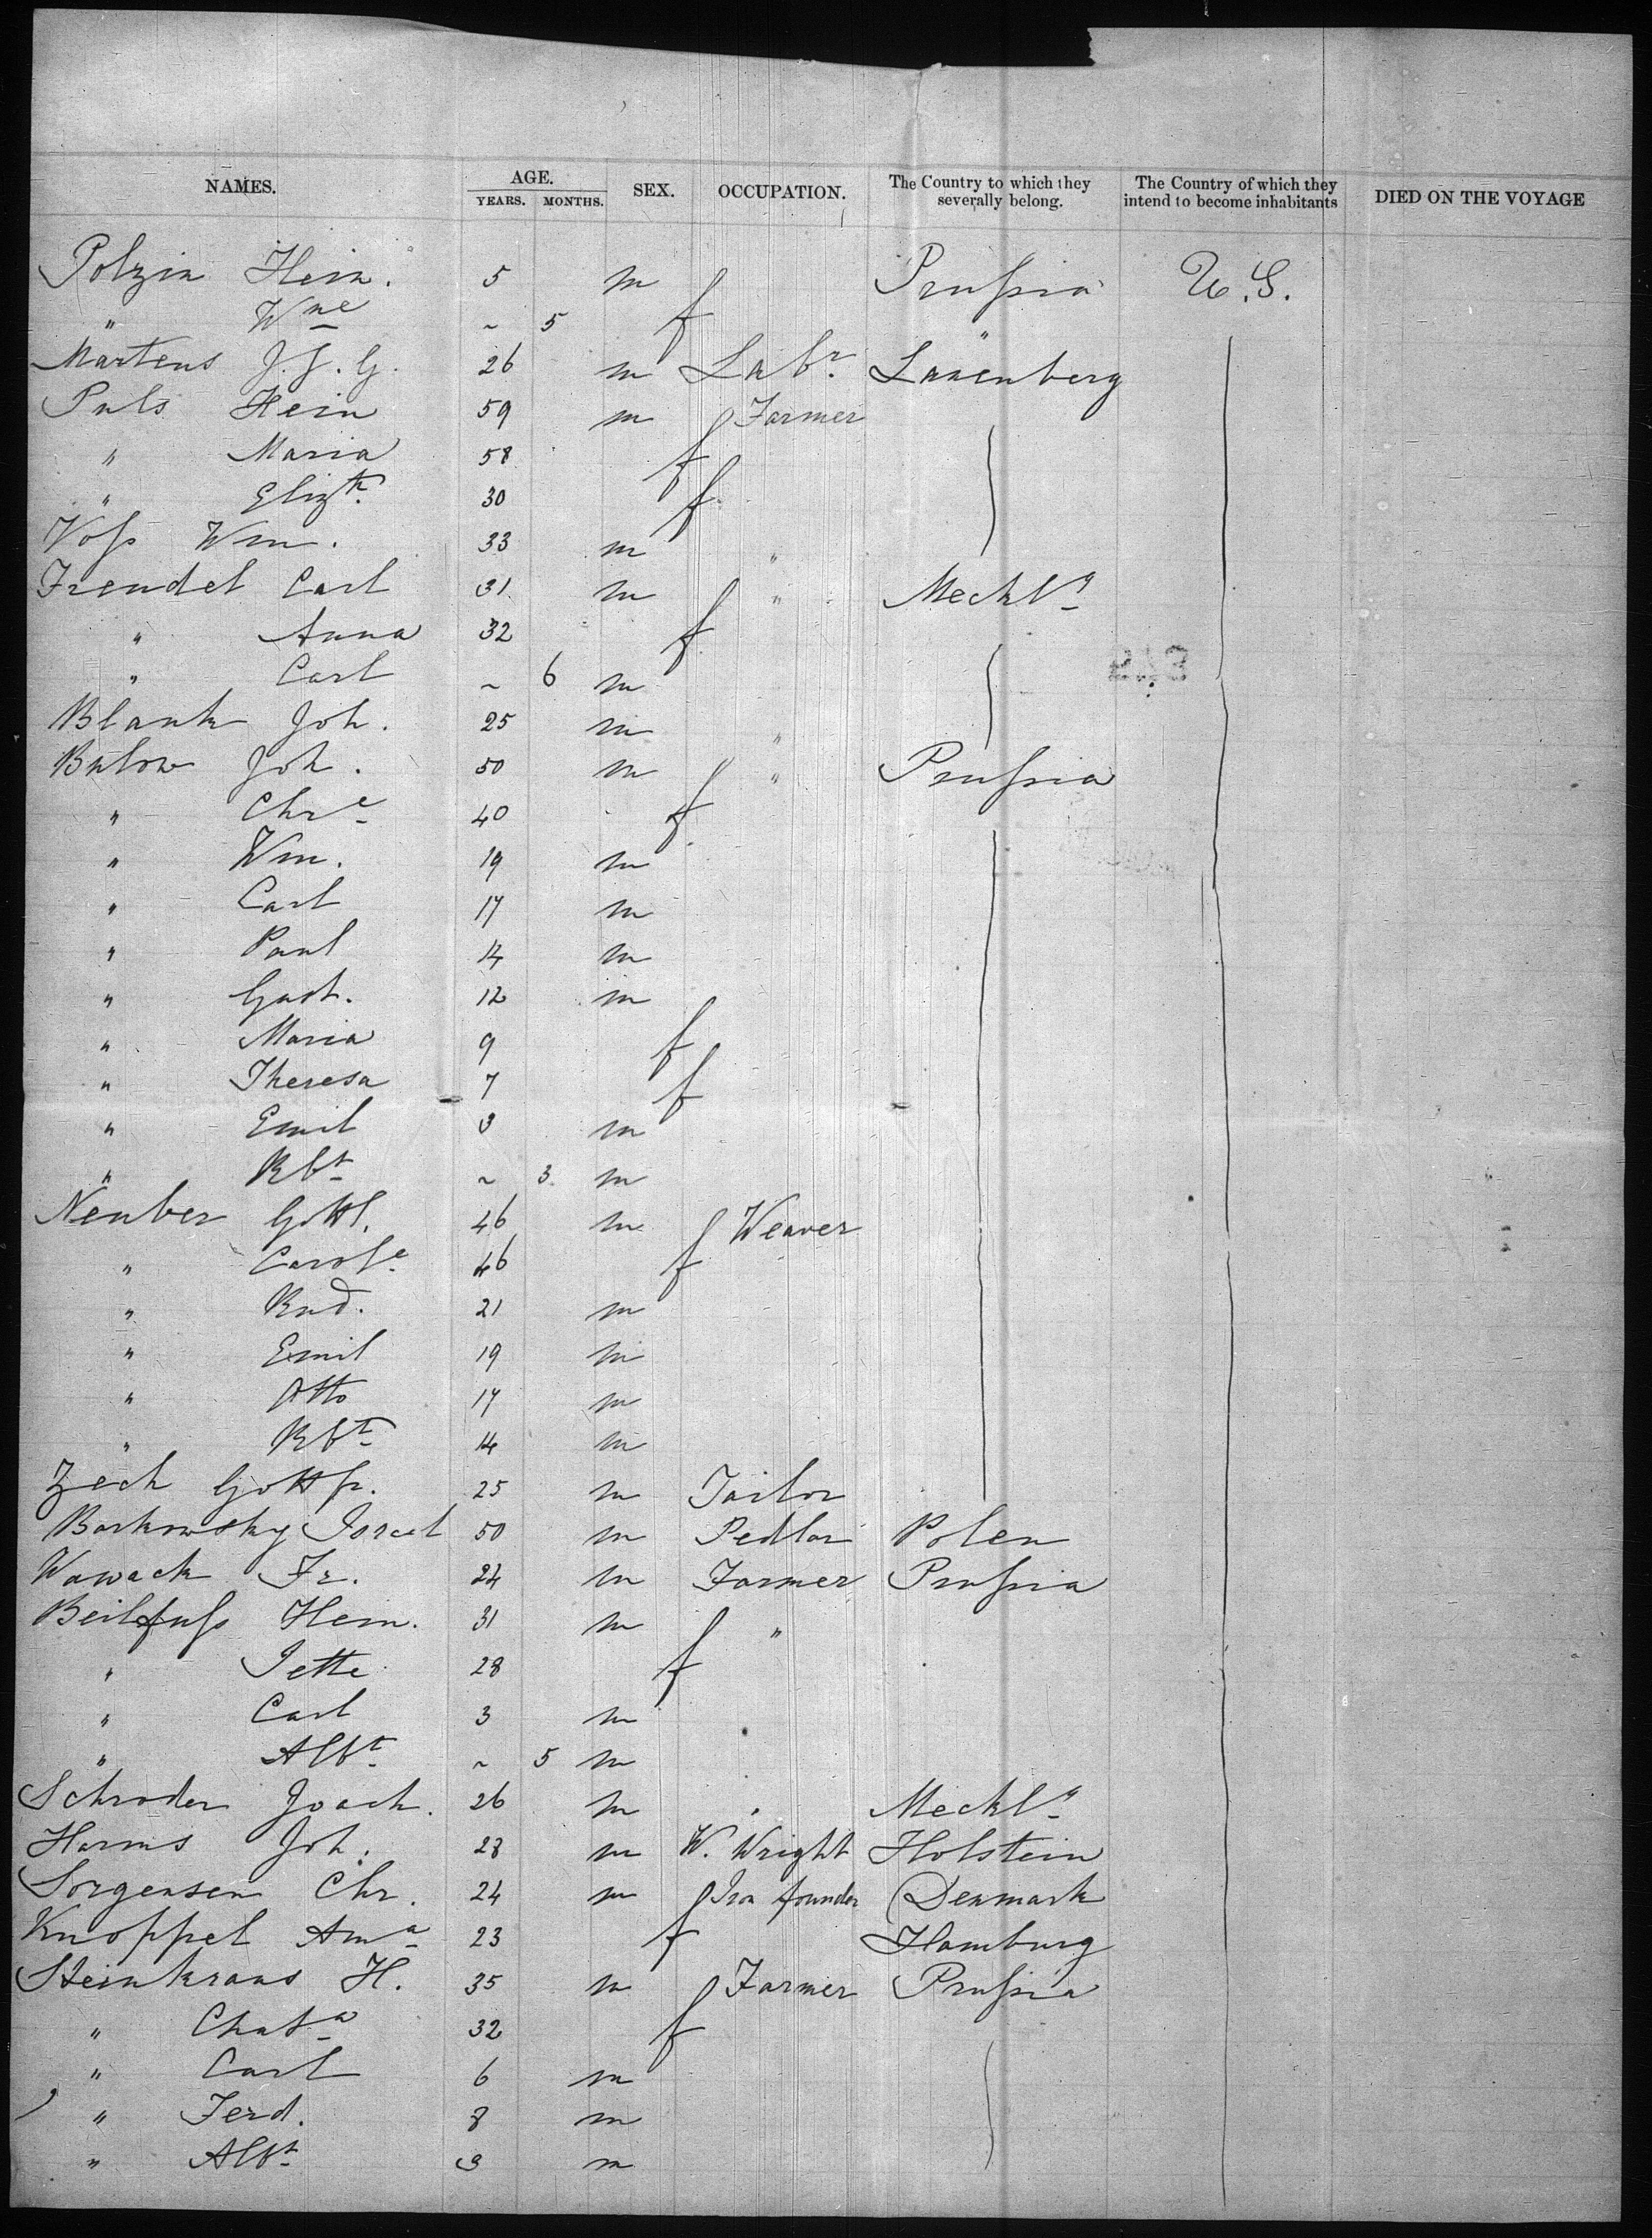 NAMES. AGE. SEX. OCCUPATION. The Country to which they severally belong. The Country of which they intend to become inhabitants DIED ON THE VOYAGE
YEARS. MONTHS.
Polzin Hein. 5 m Prussia U.S.
" Wne ~ 5 f "
Martens J. J. G. 26 m Labr. Lauenberg
Puls Hein 59 m Farmer
" Maria 58 f
" Elizth. 30 f
Voss Wm. 33 m "
Frendel Carl 31 m " Mecklg
" Anna 32 f
" Carl ~ 6 m
Blank Joh. 25 m "
Bulow Joh. 50 m " Prussia
" Chre 40 f
" Wm. 19 m
" Carl 17 m
" Paul 14 m
" Gust. 12 m
" Maria 9 f
" Theresa 7 f
" Emil 3 m
" Rbt ~ 3 m
Neuber Gottl. 46 m Weaver
" Carole 46 f
" Rud. 21 m
" Emil 19 m
" Otto 17 m
" Rbt 14 m
Zech Gottfr. 25 m Tailor
Borkowsky Israel 50 m Pedlar Polen
Wawack Fr. 24 m Farmer Prussia
Beilfuss Hein. 31 m "
" Jette 28 f
" Carl 3 m
" Albt ~ 5 m
Schroder Joach. 26 m " Mecklg
Harms Joh. 28 m W. Wright Holstein
Sorgensen Chr. 24 m Iron founder Denmark
Knoppel Ama 23 f Hamburg
Steinkraus H. 35 m Farmer Prussia
" 32 f
" Carl 6 m
" Ferd. 8 m
" Albt 3 m